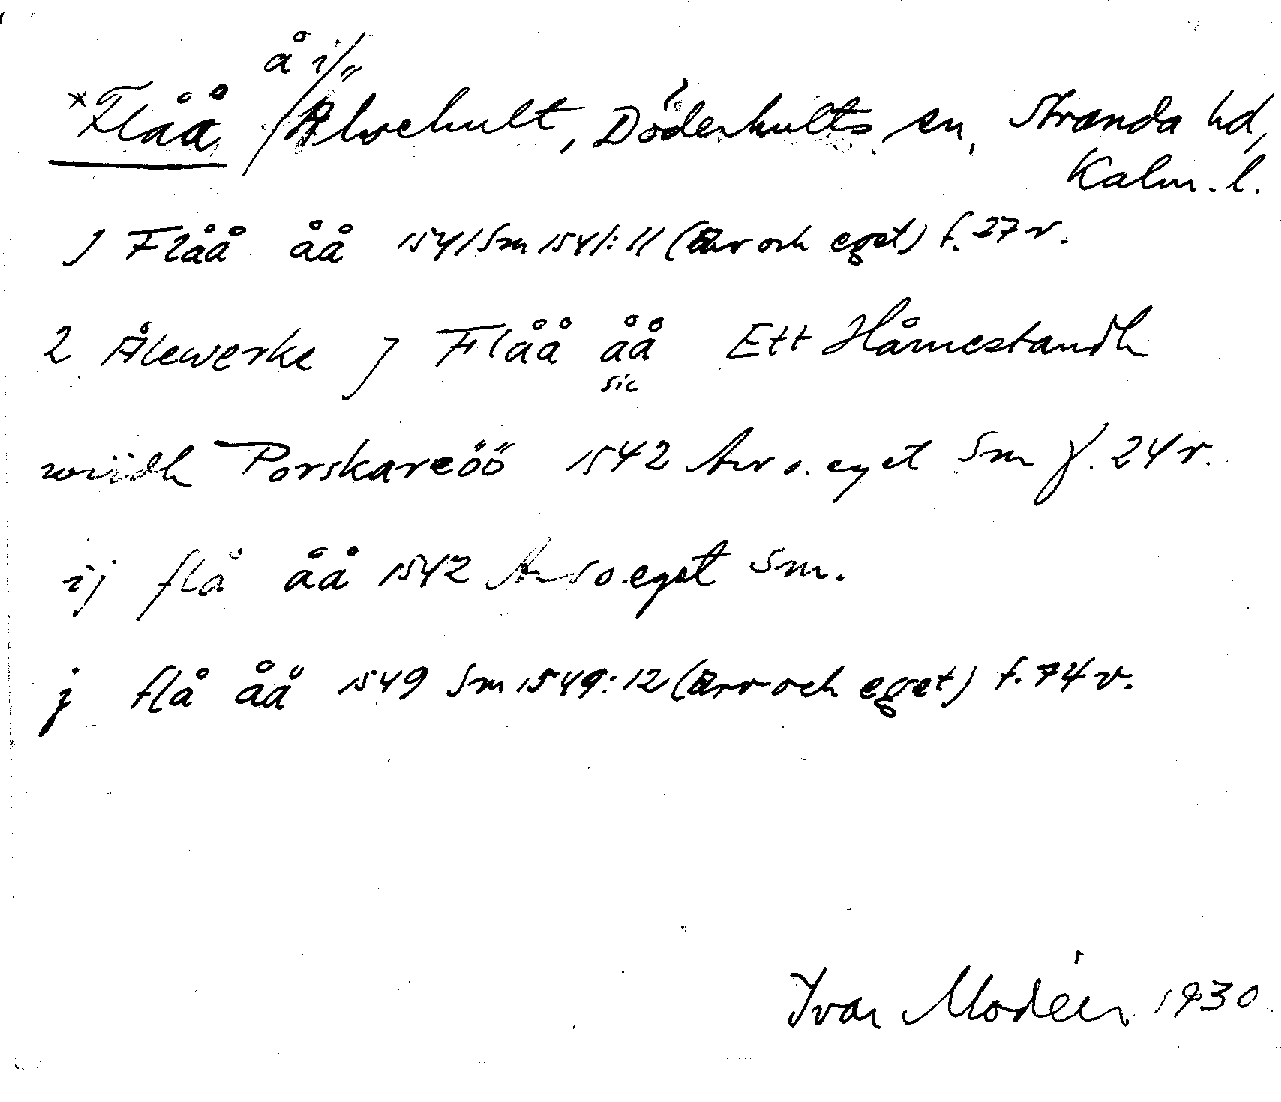 å i/
*Flåå /Älvehult, Döderhults sn, Stranda hd,
Kalm. l.
J Flåå åå 1541 Sm 1541:11 (Arv och eget) f. 27 r.
2 Ålewerke J Flåå åå Ett Hårnestandh
sic
wiidh Porskareöö 1542 Arv o. eget Sm f. 24 r.
ij flå åå 1542 Arv o. eget Sm.
j flå åå 1549 Sm 1549:12 (Arv och eget) f. 74 v.
Yvar Modéer 1930